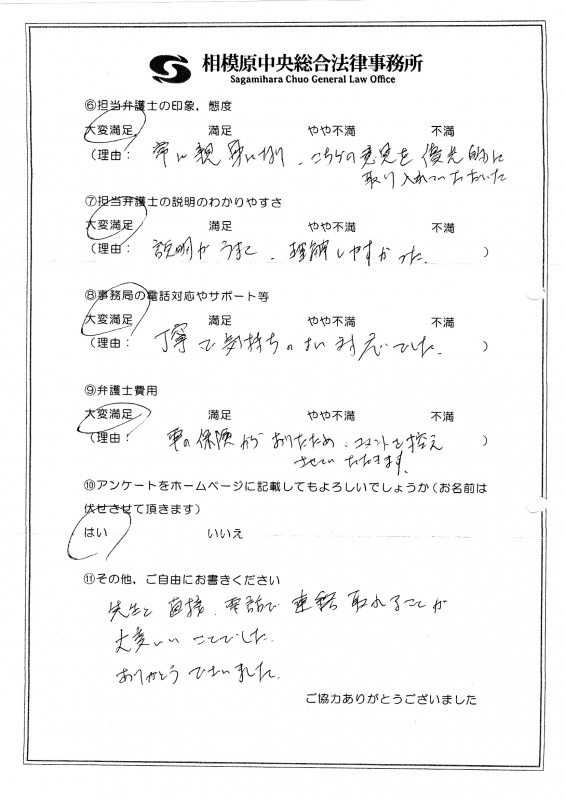 相模原中央総合法律事務所
Sagamihara Chuo General Law Office
⑥担当弁護士の印象，態度
大変満足 満足 やや不満 不満
（理由： 常に親身に 、こちらの意見を優先的に
取り入れていただいた
⑦担当弁護士の説明のわかりやすさ
大変満足 満足 やや不満 不満
（理由： 説明がうまく、理解しやすかった。 ）
⑧事務局の電話対応やサポート等
大変満足 満足 やや不満 不満
（理由： 丁寧で気持ちのよい対応でした。 ）
⑨弁護士費用
大変満足 満足 やや不満 不満
（理由： 車の保険がおりたため、コメントを控え ）
させていただきます。
⑩アンケートをホームページに記載してもよろしいでしょうか（お名前は
伏せさせて頂きます）
はい いいえ
⑪その他，ご自由にお書きください
先生と直接、電話で連絡取れることが
大変いいことでした。
ありがとうございました。
ご協力ありがとうございました